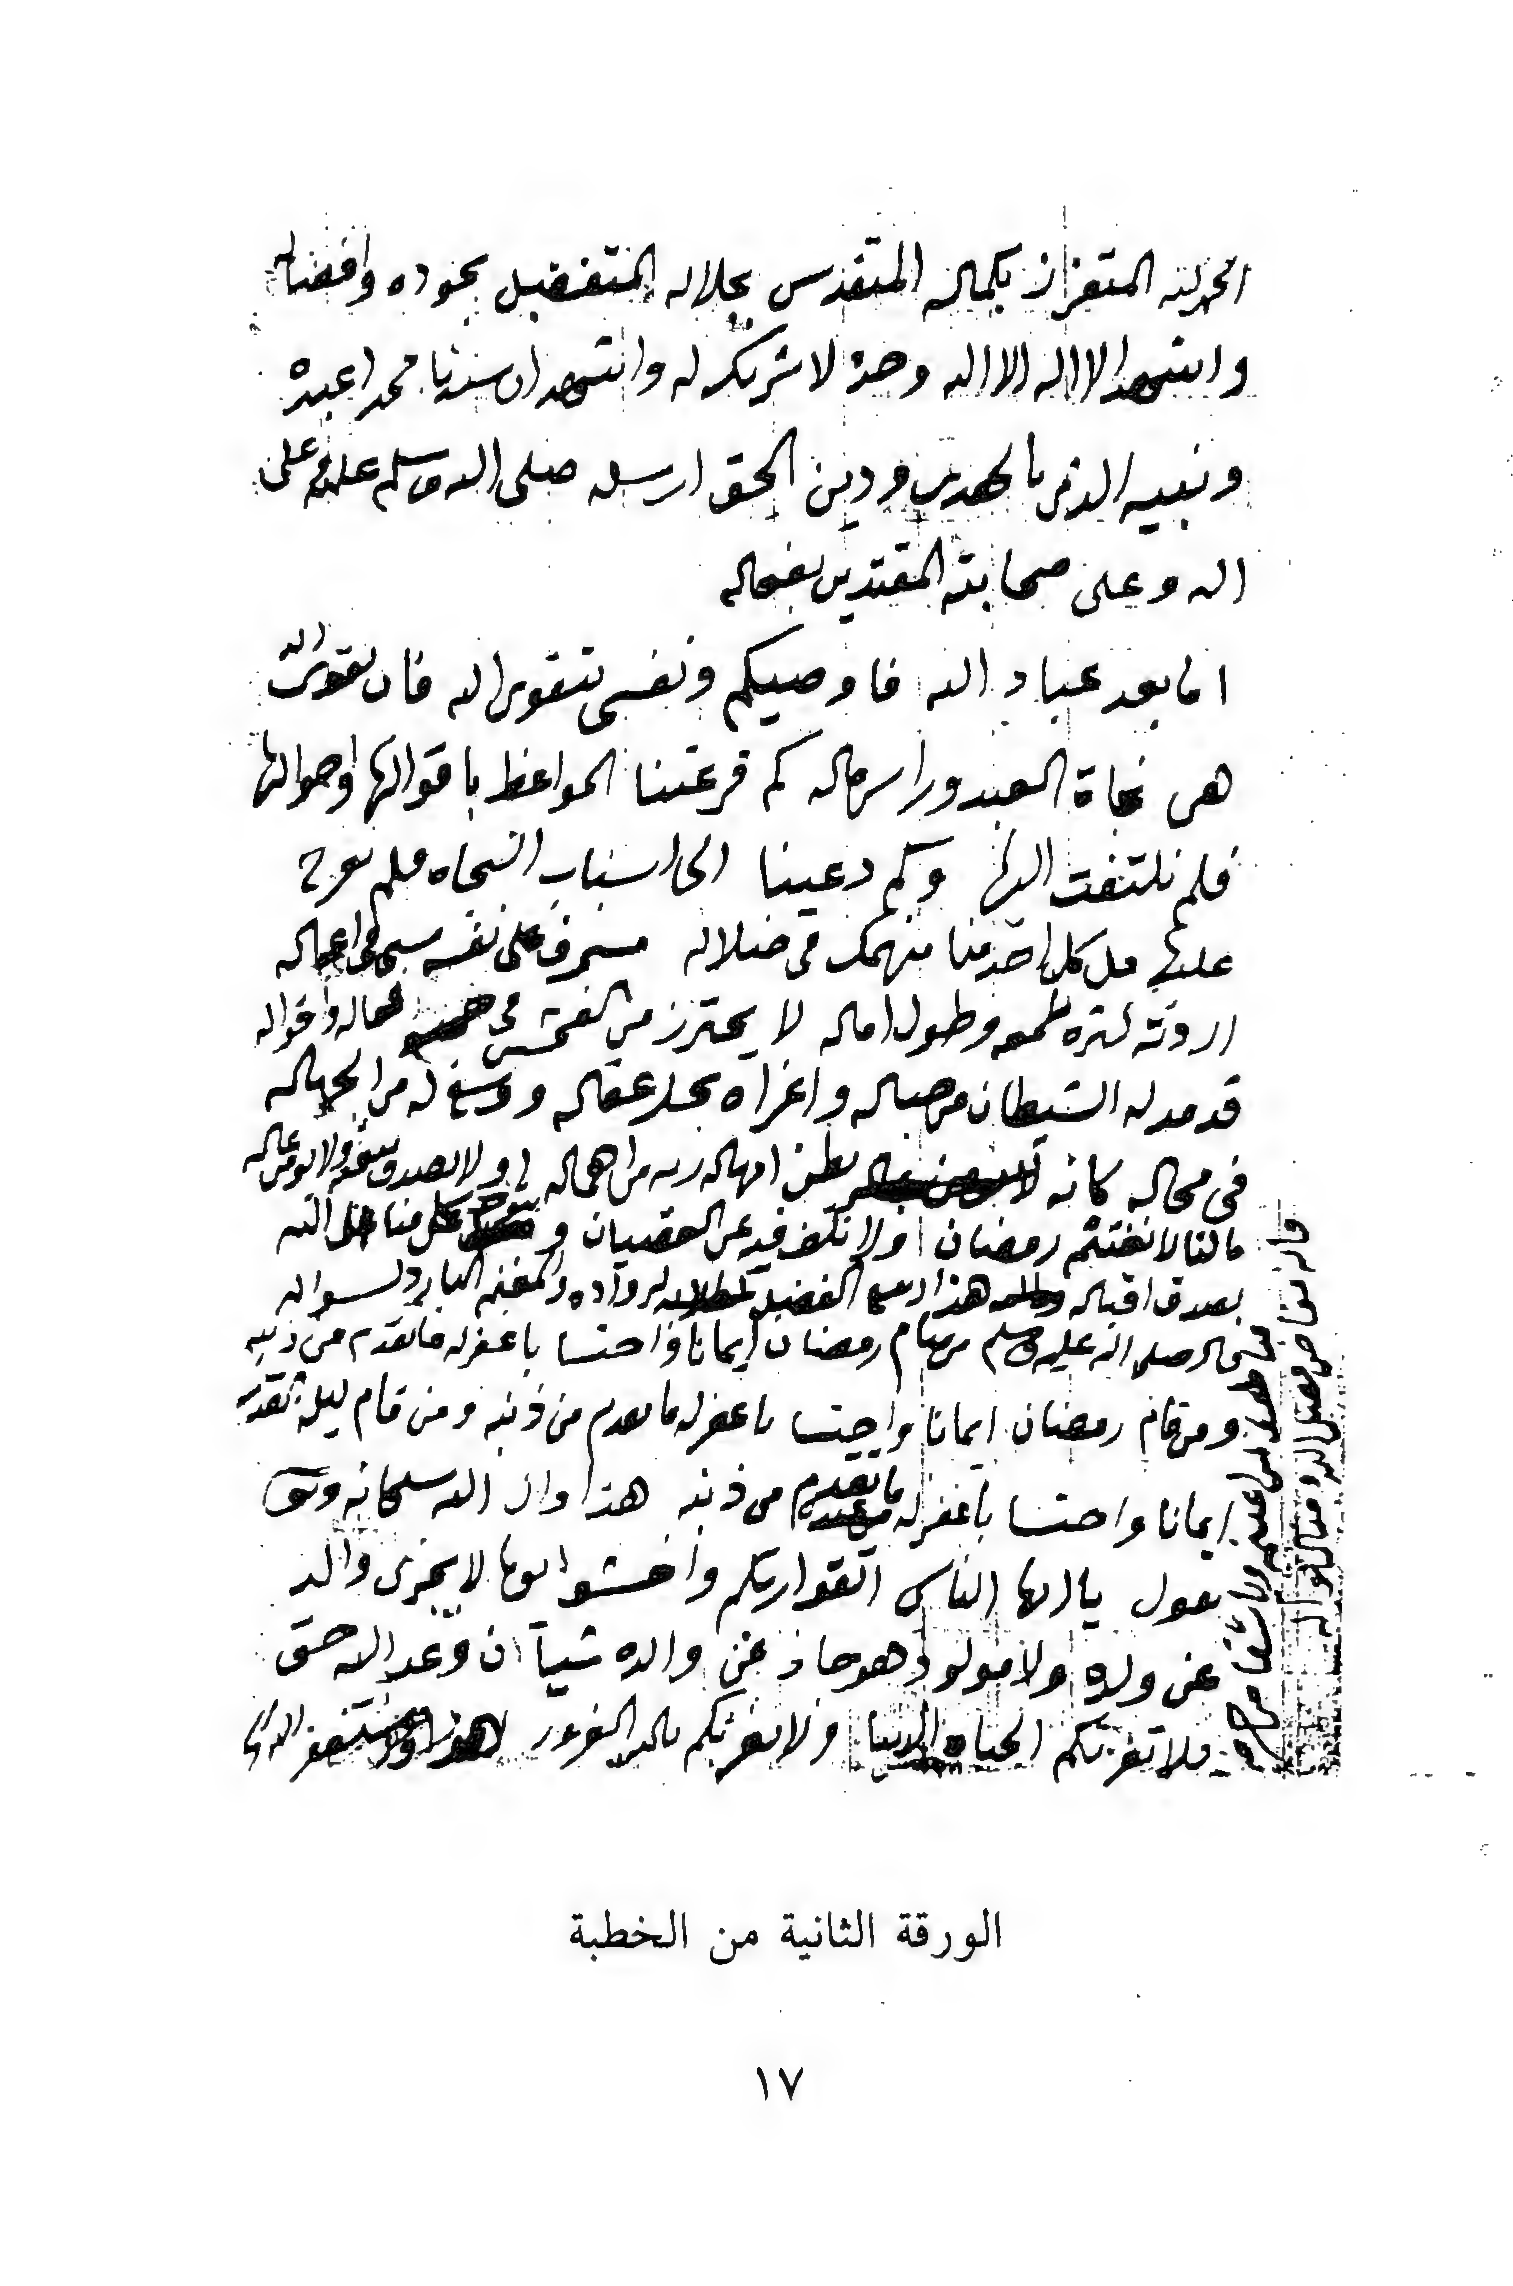 الحمد لله المتعزز بكماله المتقدس بجلاله المتفضل بجوده وافضاله
واشهد ان لا اله الا الله وحده لا شريك له واشهد ان سيدنا محمدا عبده
ونبيه الذي بالهدى ودين الحق ارسله صلى الله وسلم عليه وعلى
اله وعلى صحابته المقتدين بفعاله
اما بعد عباد الله فاوصيكم ونفسي بتقوى الله فان تقوى الله
هي نجاة العبد وراس ماله كم قرعتنا المواعظ باقوالها واحوالها
فلم نلتفت اليها وكم دعينا الى اسباب النجاه فلم نعرج
عليها بل كل احد منا منهمك في ضلاله مسرف على نفسه سيئ في اعماله
اردته شره طمعه وطول اماله لا يحترز من الفحش في فعاله واقواله
قد مد له الشيطان من حباله واغراه بحل عقاله ووسع له من الجهاله
في محاله كانه يظن امهال ربه من اهماله او لا يصدق
مالنا لا نغتنم رمضان ولا نكف فيه عن العصيان و يتوجه كل منا الى الله
بصدق اقباله هذا ربيع الفضل لرواده والمغنم البارد لسؤاله
قال صلى الله عليه وسلم من صام رمضان ايمانا واحتسابا غفر له ما تقدم من ذنبه
ومن قام رمضان ايمانا واحتسابا غفر له ما تقدم من ذنبه ومن قام ليلة القدر
ايمانا واحتسابا غفر له ما تقدم من ذنبه هذا وان الله سبحانه وتعالى
يقول يا ايها الناس اتقوا ربكم واخشوا يوما لا يجزى والد
عن ولده ولا مولود هو جاز عن والده شيئا ان وعد الله حق
فلا تغرنكم الحياه الدنيا ولا يغرنكم بالله الغرور
الورقة الثانية من الخطبة
١٧